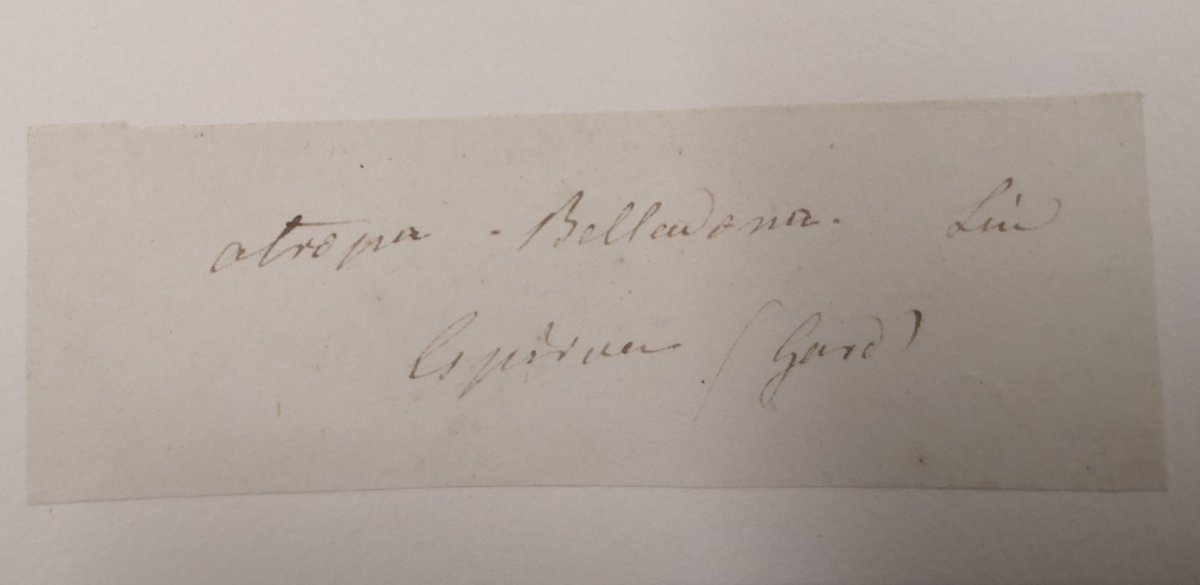 atropa - Belladona. Lin
Espérou (Gard)